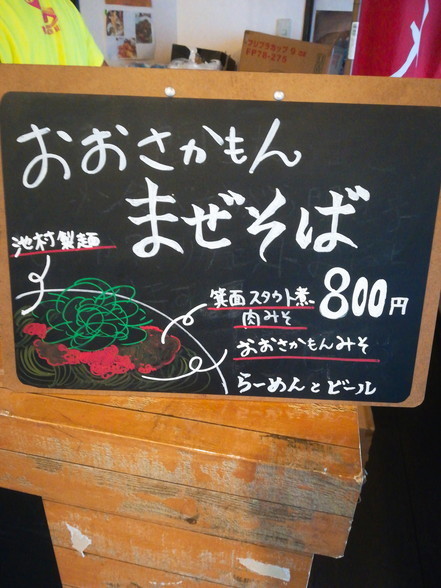 フジプラカップ9
FP78-275
おおさかもん
まぜそば
池村製麺
箕面スタウト煮
肉みそ
800円
おおさかもんみそ
らーめんとビール